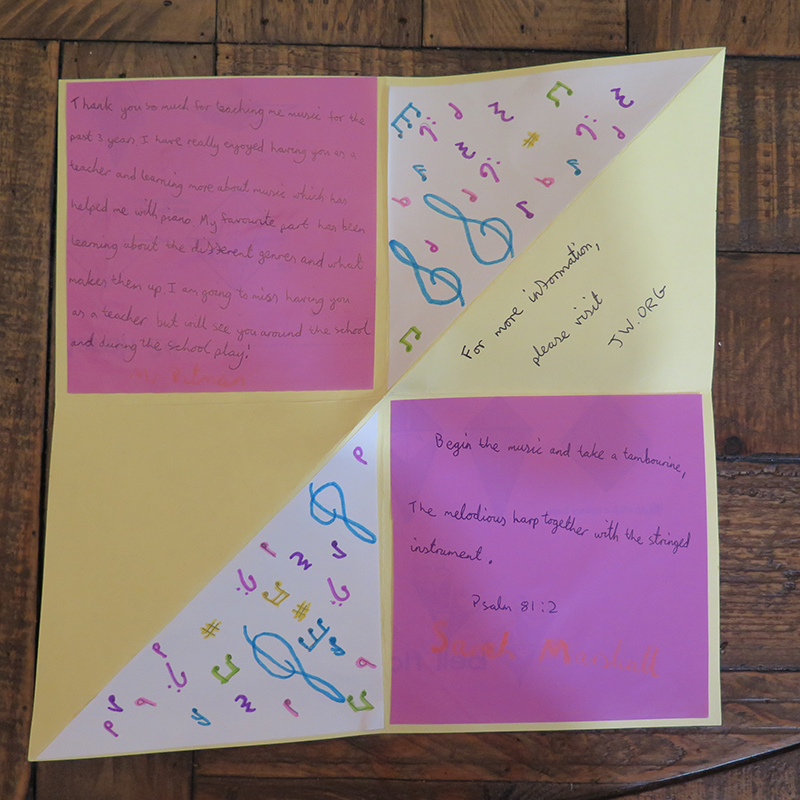 Thank you so much for teaching me music for the
past 3 years. I have really enjoyed having you as a
teacher and learning more about music which has
helped me with piano. My favourite part has been
learning about the different genres and what
makes them up. I am going to miss having you
as a teacher but will see you around the school
and during the school play!
For more information,
please visit
JW.ORG
Begin the music and take a tambourine,
The melodious harp together with the stringed
instrument.
Psalm 81:2
Marshall